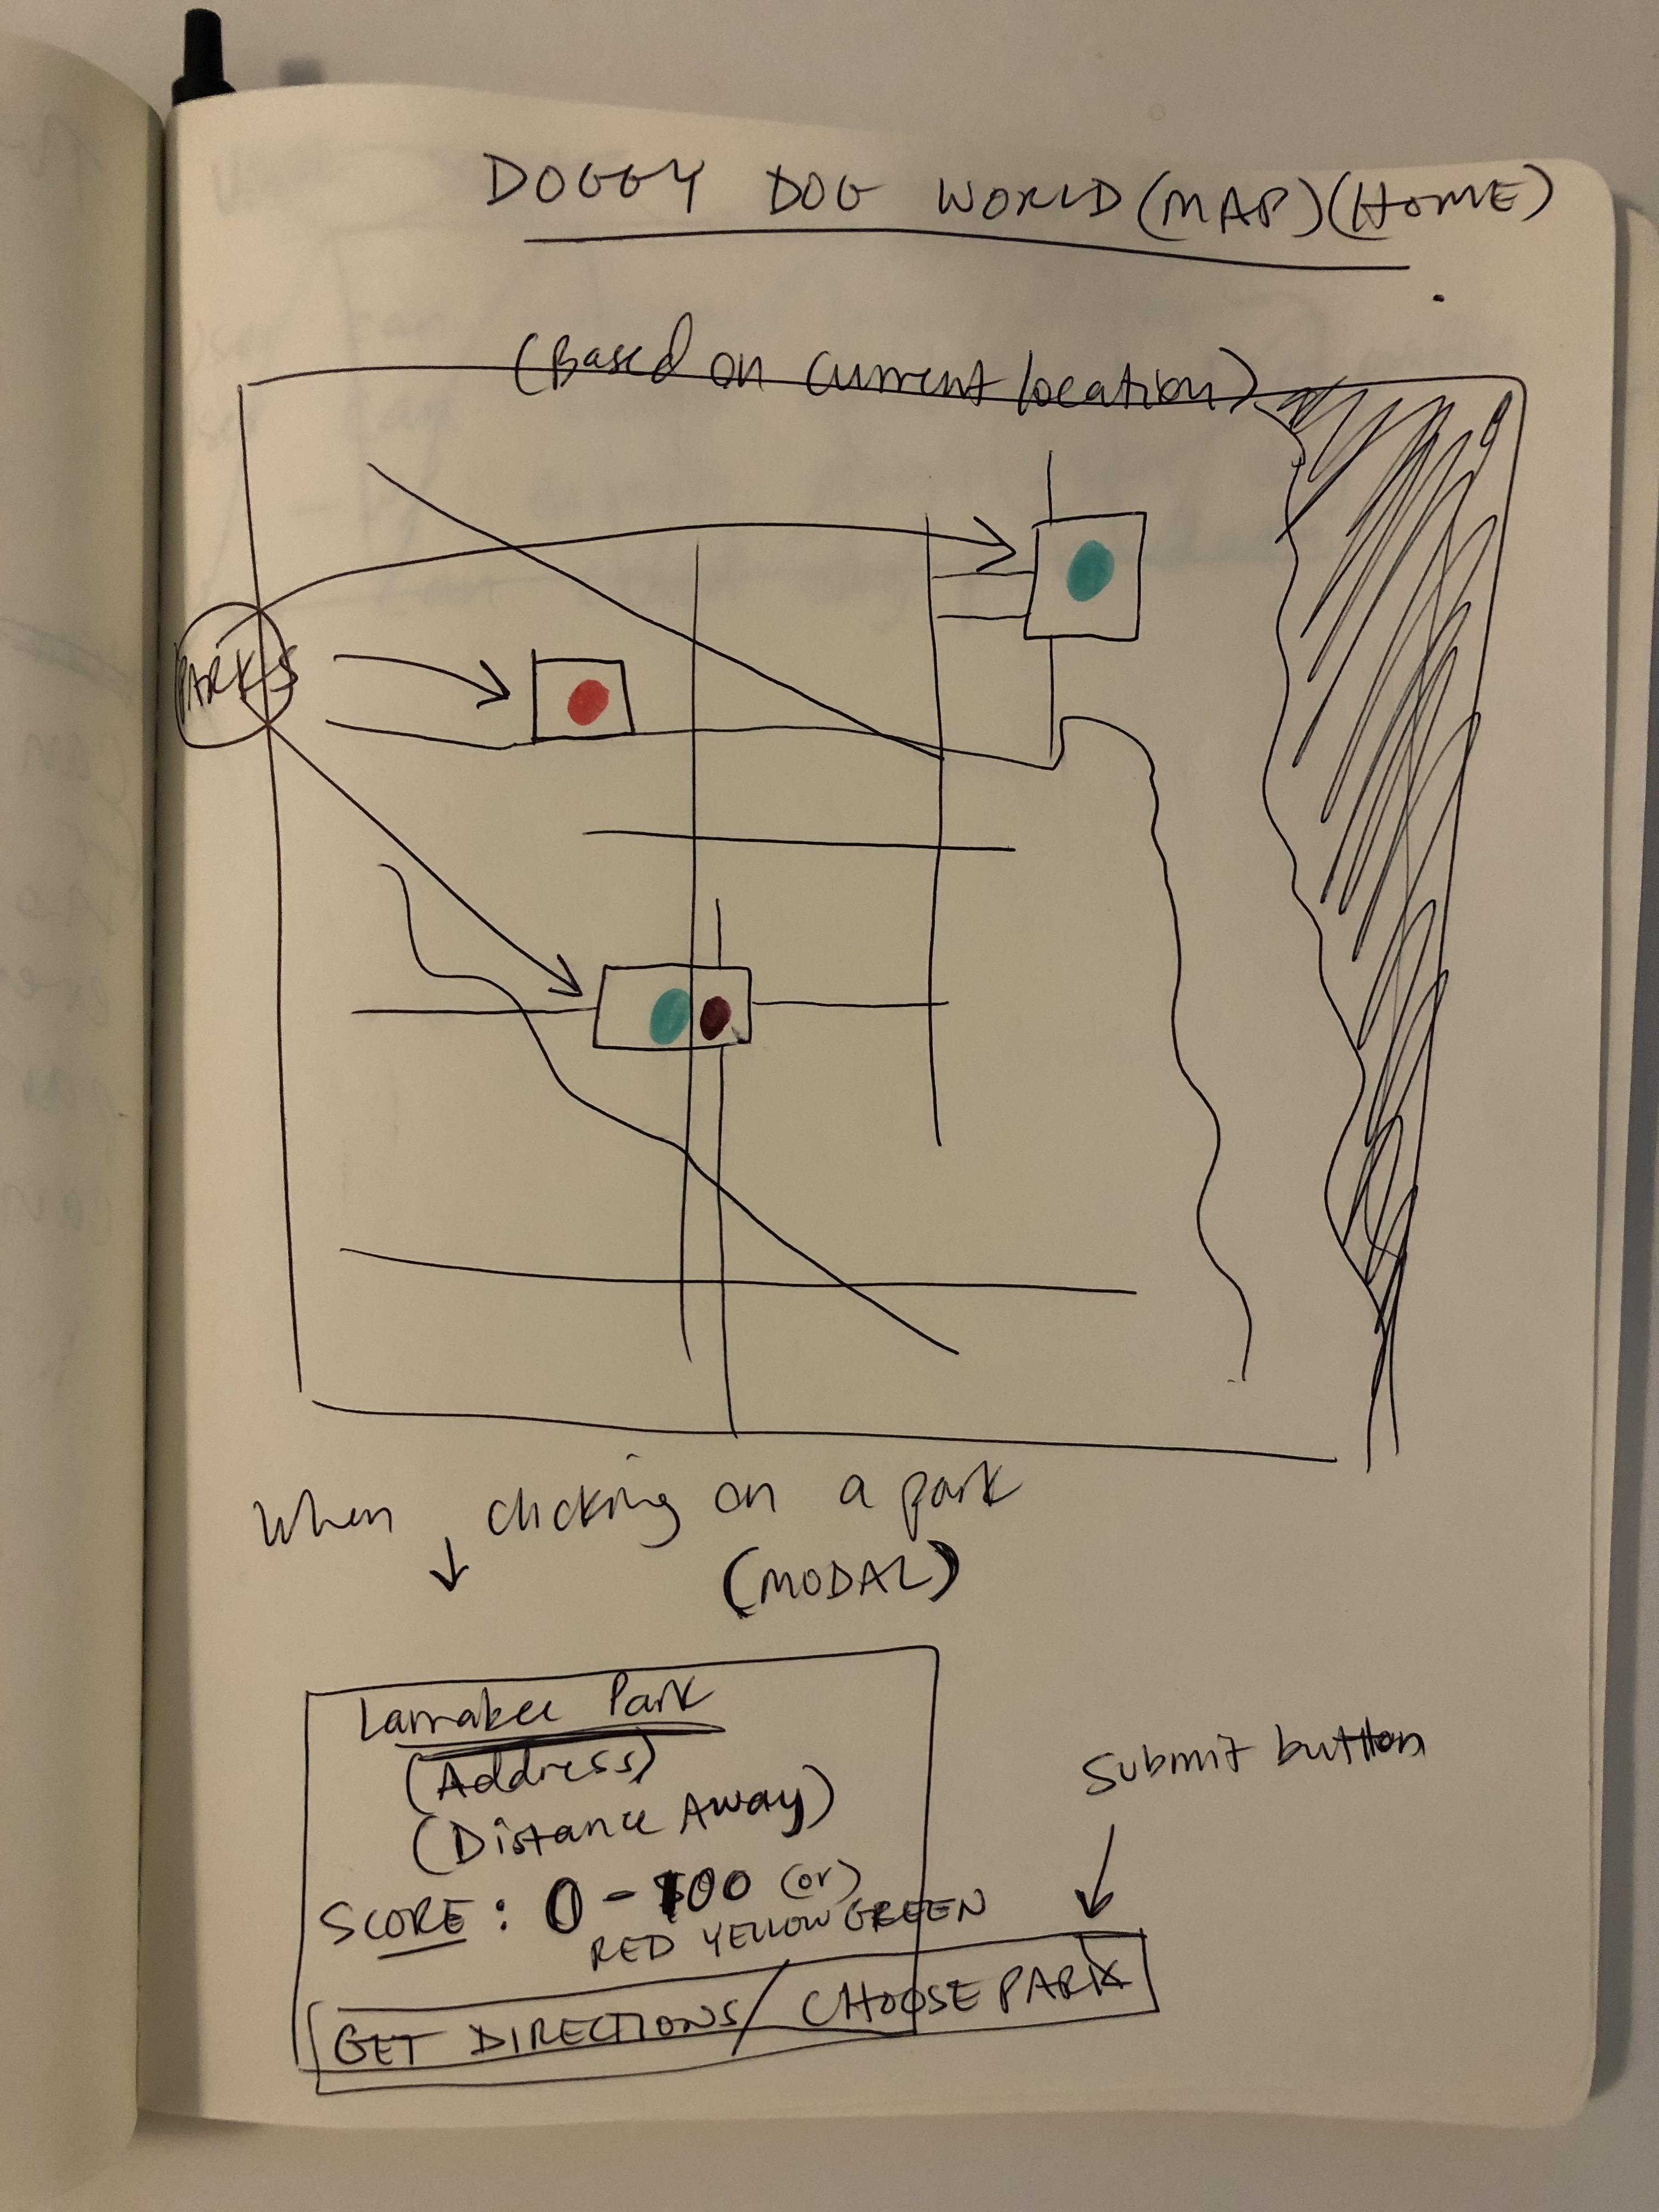 DOGGY DOG WORLD (MAP) (HOME)
(Based on current location)
PARKS
When clicking on a park
(MODAL)
Park
(Address)
(Distance Away)
SCORE: 0 - 100 (or)
RED YELLOW GREEN
Submit button
GET DIRECTIONS / CHOOSE PARK